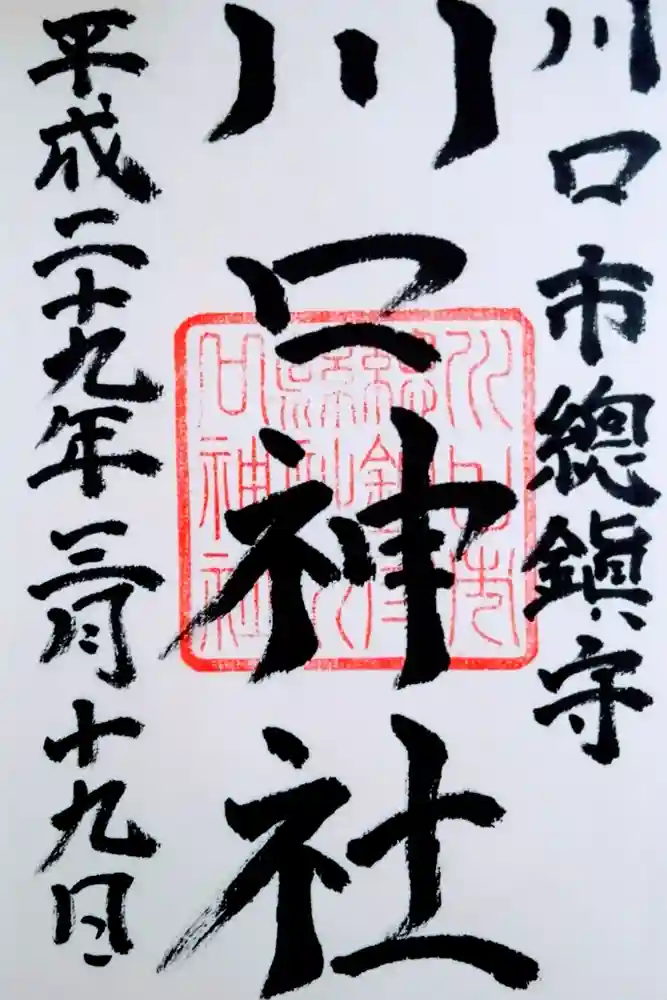 川口市總鎮守
川口神社
平成二十九年三月十九日